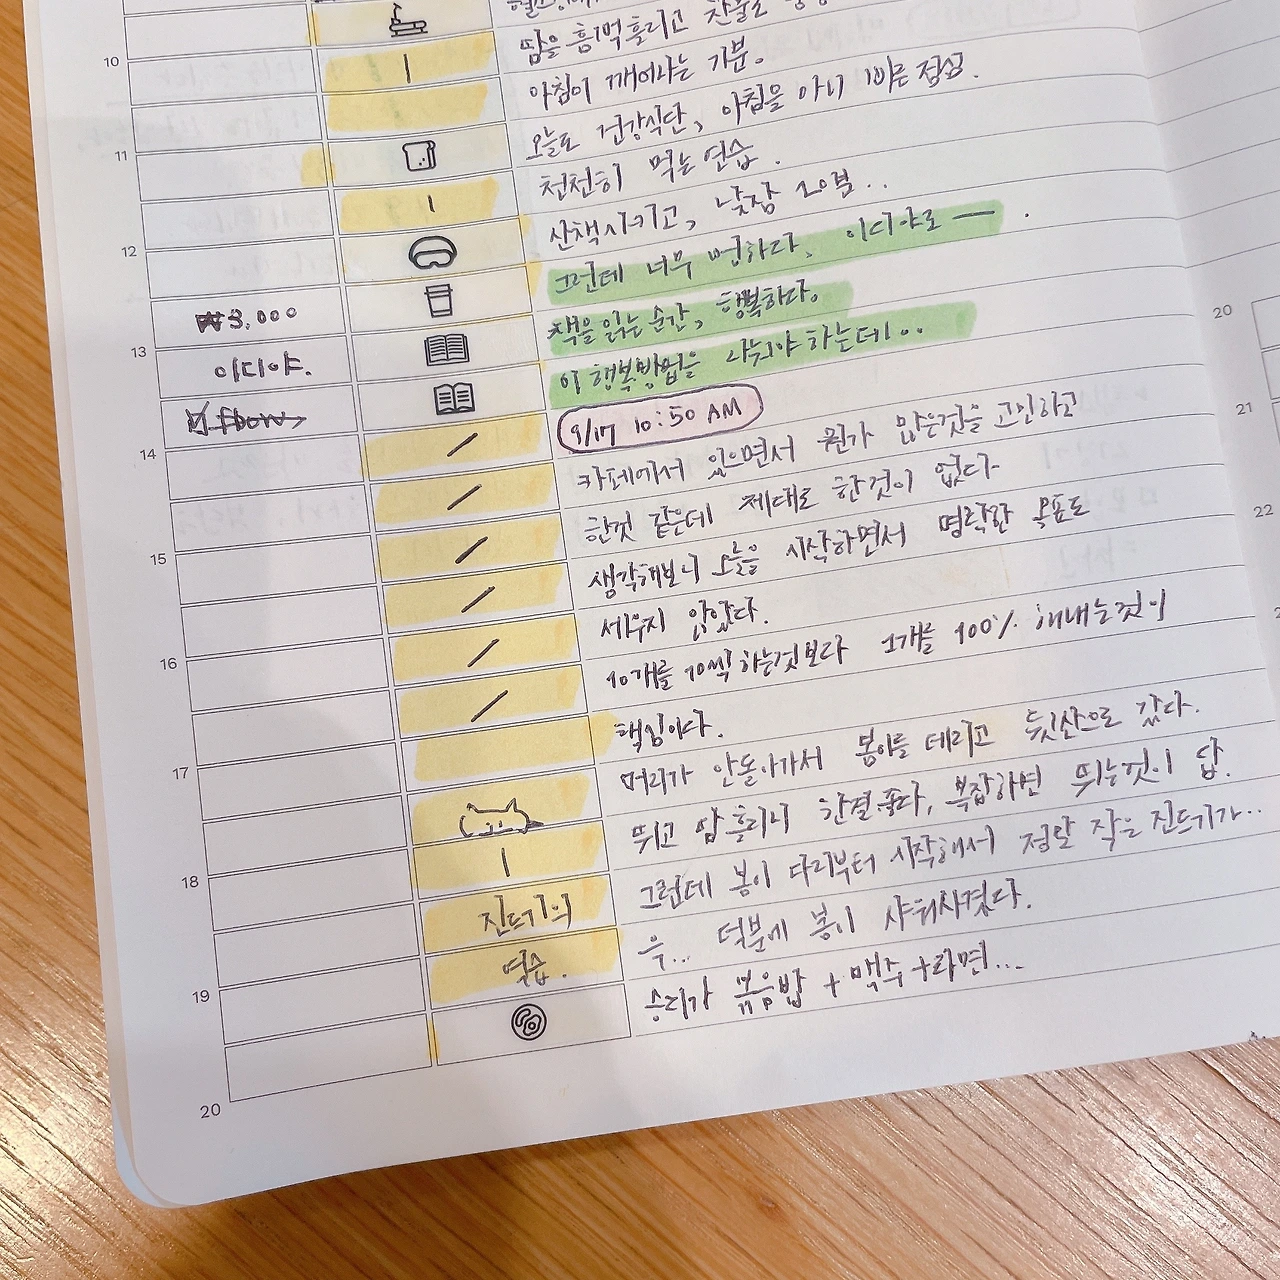 땀을 흠뻑 흘리고 찬물로
10
아침이 깨어나는 기분.
오늘도 건강식단, 아침을 아니 빠른 점심.
11
천천히 먹는 연습.
산책시키고, 낮잠 20분..
12
그런데 너무 멍하다. 이디야로 — .
₩3,000
책을 읽는 순간, 행복하다.
13
이디야.
이 행복방법을 나눠야 하는데..
9/17 10:50 AM
14
카페에서 있으면서 뭔가 많은것을 고민하고
한것 같은데 제대로 한것이 없다
15
생각해보니 오늘을 시작하면서 명확한 목표도
세우지 않았다.
16
10개를 10씩 하는것보다 1개를 100% 해내는것이
핵심이다.
17
머리가 안돌아가서 봉이를 데리고 뒷산으로 갔다.
뛰고 땀 흘리니 한결 좋다, 복잡하면 뛰는것이 답.
18
그런데 봉이 다리부터 시작해서 정말 작은 진드기가..
진드기의
윽... 덕분에 봉이 샤워시켰다.
역습.
19
승리가 볶음밥 + 맥주 + 라면...
20
20
21
22